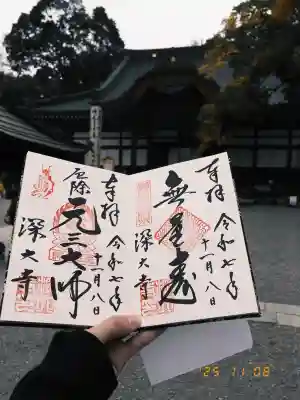 奉拝
令和七年
十一月八日
無量寿
深大寺
奉拝
令和七年
十一月八日
厄除
元三大師
深大寺
'25 11 08